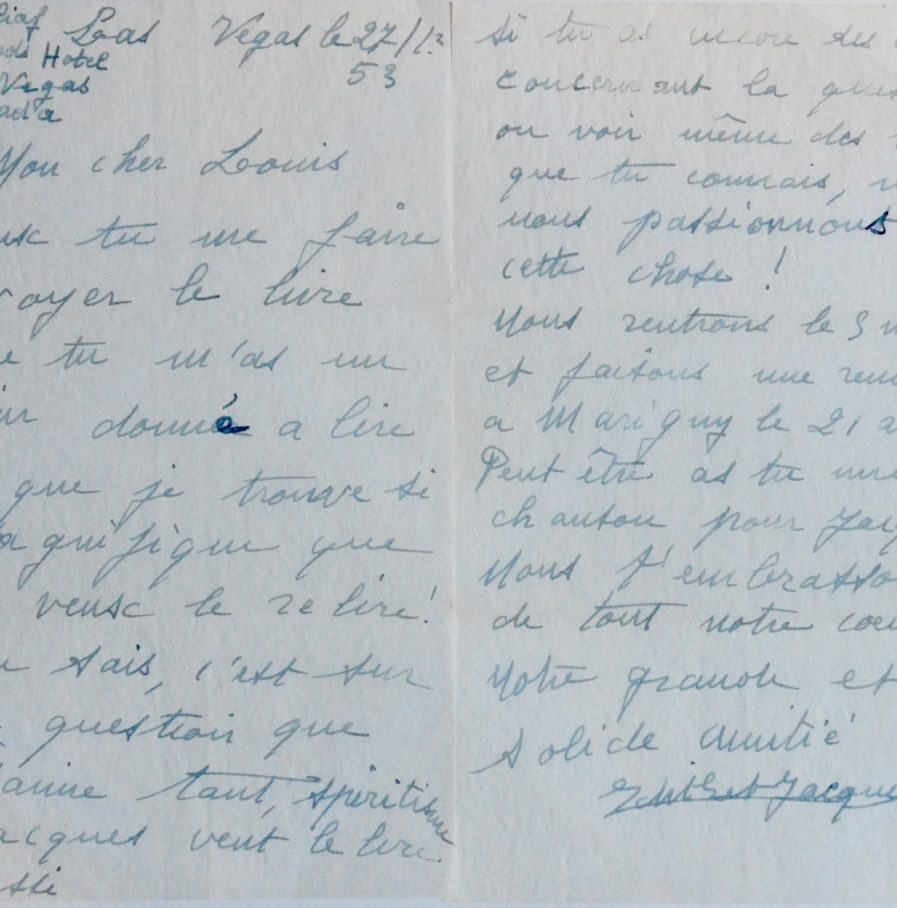 Piaf
Las Vegas le 27/12
Hotel
Vegas
53
Mon cher Louis
tu me faire
le livre
tu m'as un
donné a lire
que je trouve si
que
veusc le relire!
sais, c'est sur
question que
tant, spiritisme
Jacques veut le lire
si tu as encore des
concernant la
ou voir même des
que tu connais,
nous passionnons
cette chose !
Nous rentrons le 3
et faisons une
a Marigny le 21
Peut être as tu une
chanson pour
Nous t'embrassons
de tout notre
Notre grande et
solide amitié
Edith et Jacques